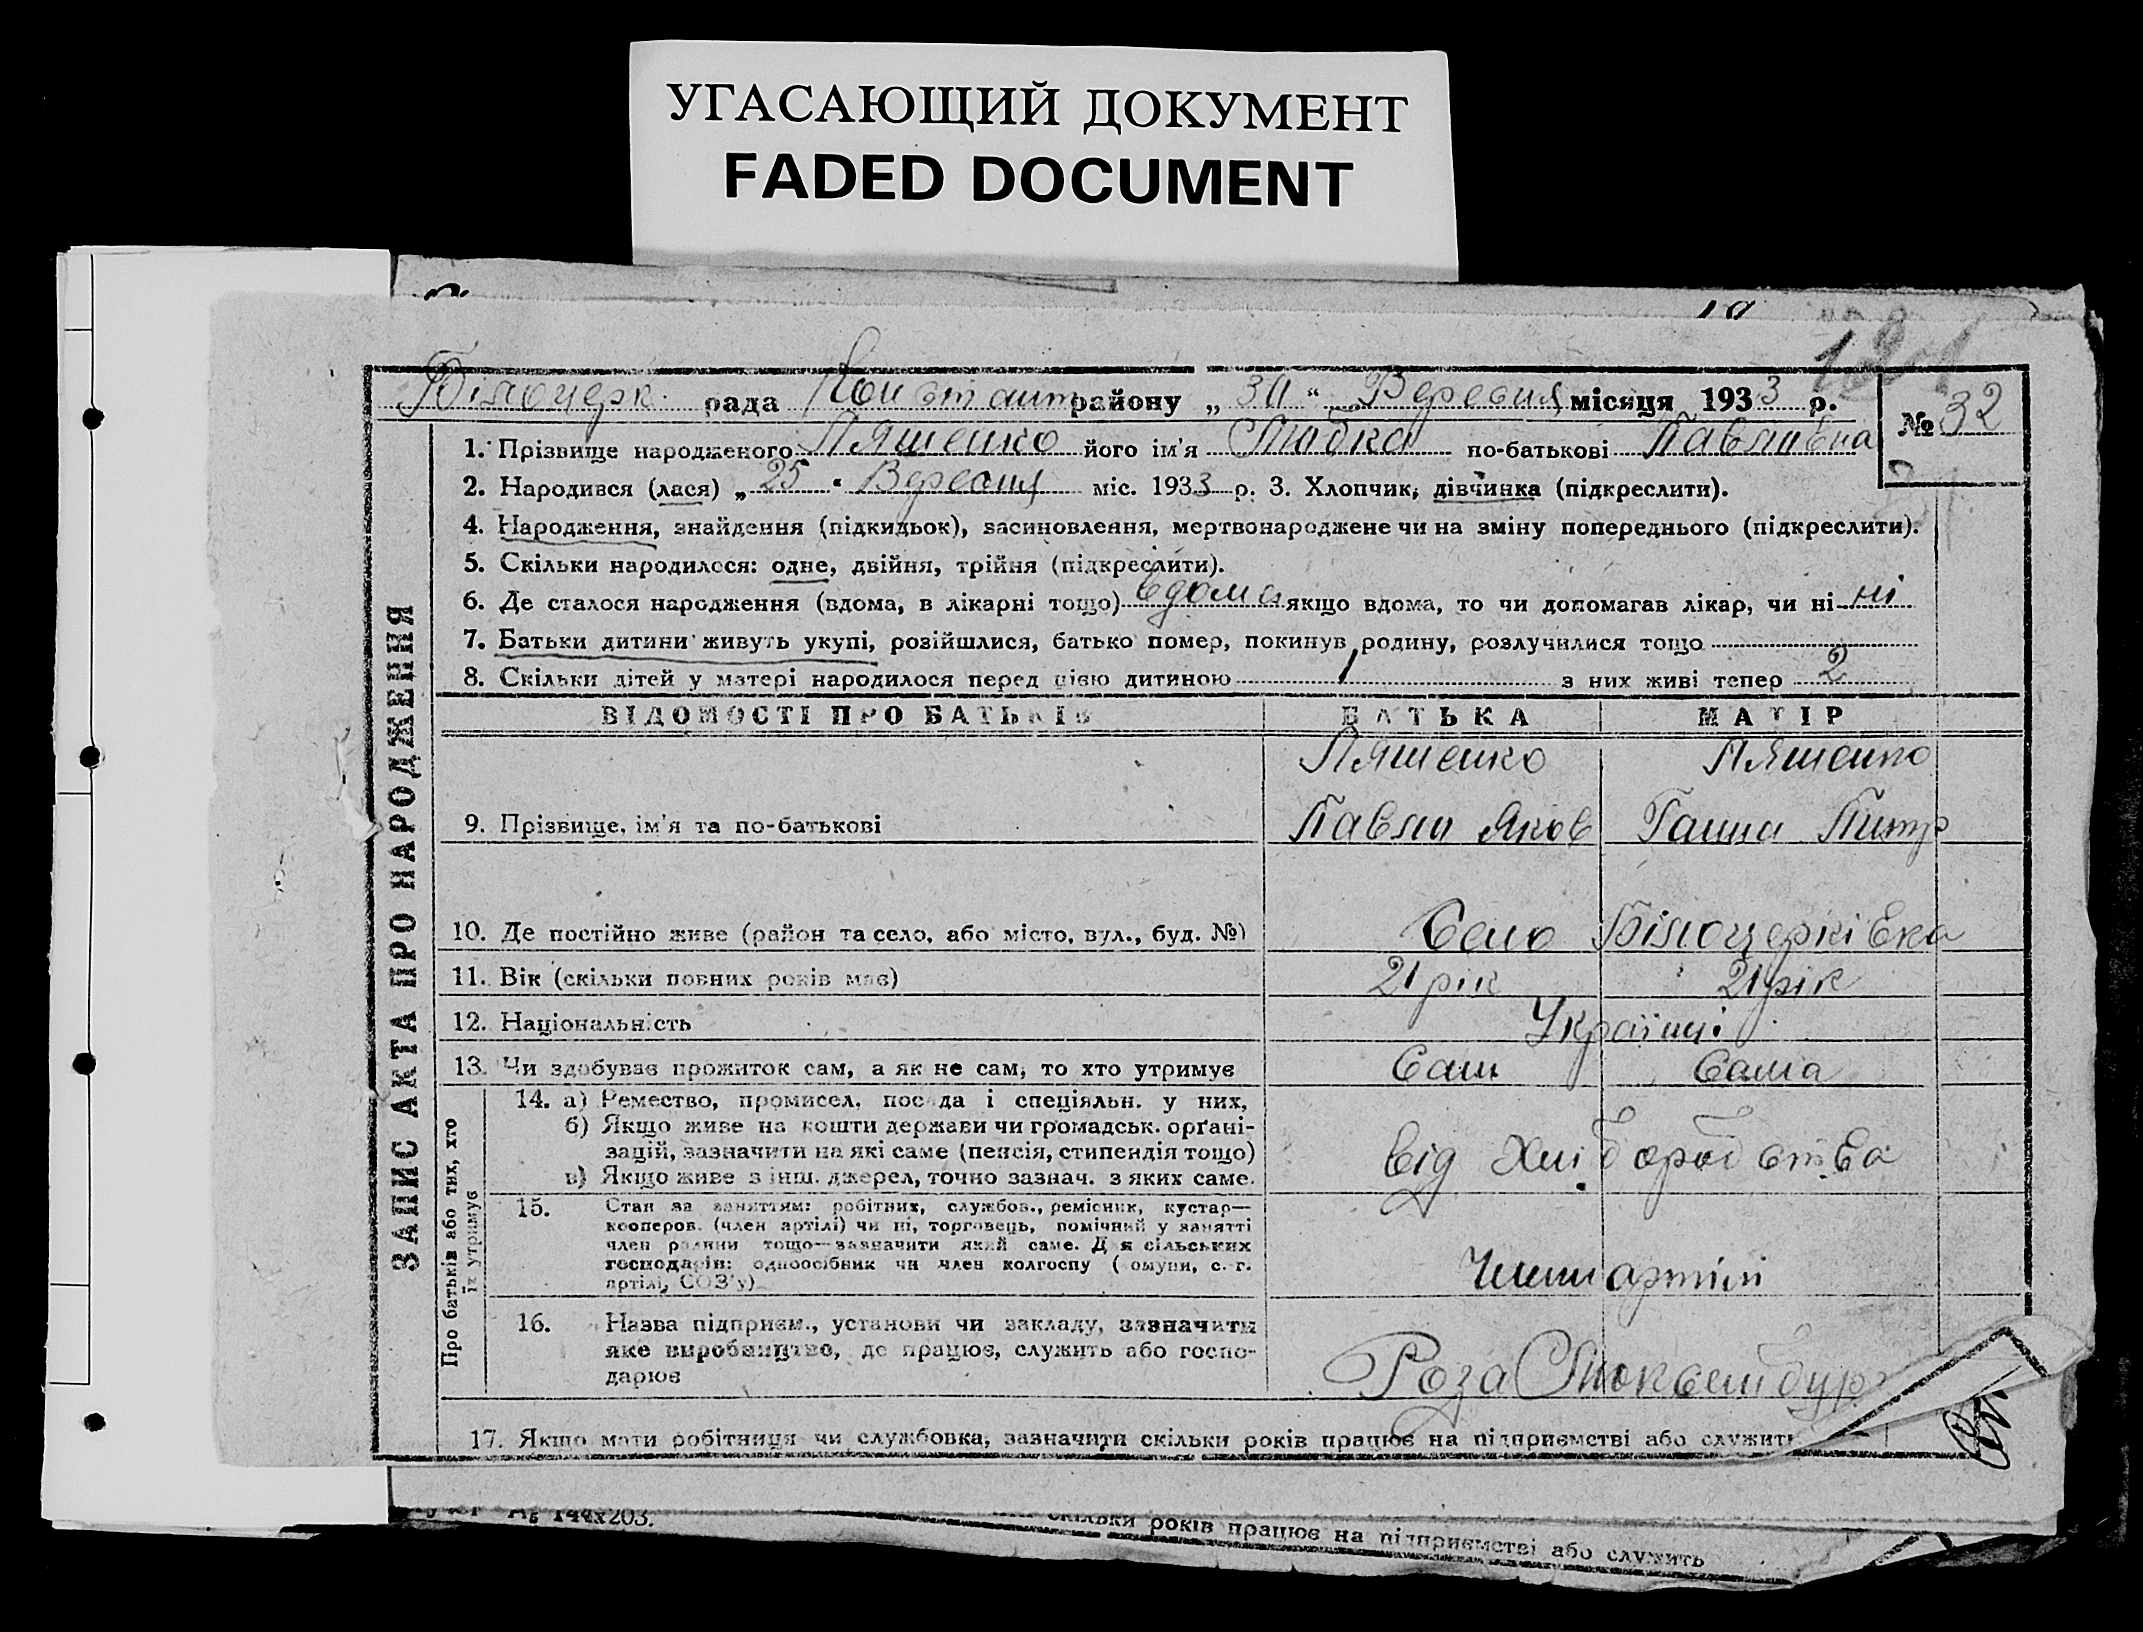 УГАСАЮЩИЙ ДОКУМЕНТ
FADED DOCUMENT
Білоцерк. рада Констант району „30“ Вересня місяця 1933 р.
№ 32
1. Прізвище народженого Ляшенко його ім'я по-батькові Павлівна
2. Народився (лася) „25“ Вересня міс. 1933 р. 3. Хлопчик, дівчинка (підкреслити).
4. Народження, знайдення (підкидьок), засиновлення, мертвонароджене чи на зміну попереднього (підкреслити).
5. Скільки народилося: одне, двійня, трійня (підкреслити).
6. Де сталося народження (вдома, в лікарні тощо) вдома якщо вдома, то чи допомагав лікар, чи ні ні
7. Батьки дитини живуть укупі, розійшлися, батько помер, покинув родину, розлучилися тощо
8. Скільки дітей у матері народилося перед цією дитиною 1 з них живі тепер 2
ЗАПИС АКТА ПРО НАРОДЖЕННЯ
ВІДОМОСТІ ПРО БАТЬКІВ БАТЬКА МАТІР
Ляшенко Ляшенко
9. Прізвище, ім'я та по-батькові Павло Яков Ганна Питр
10. Де постійно живе (район та село, або місто, вул., буд. №) Село Білоцерківка
11. Вік (скільки повних років має) 21 рік 21 рік
12. Національність Українці
13. Чи здобуває прожиток сам, а як не сам, то хто утримує Сам Сама
Про батьків або тих, хто
їх утримує
14. а) Ремество, промисел, посада і спеціяльн. у них,
б) Якщо живе на кошти держави чи громадськ. орґані-
зацій, зазначити на які саме (пенсія, стипендія тощо)
в) Якщо живе з інш. джерел, точно зазнач. з яких саме.
від Хліборобства
15. Стан за заняттям: робітник, службов., ремісник, кустар—
кооперов. (член артілі) чи ні, торговець, помічний у занятті
член родини тощо—зазначити який саме. Для сільських
господарів: одноосібник чи член колгоспу (комуни, с.-г.
артілі, СОЗ'у)
Член артілі
16. Назва підприєм., установи чи закладу, зазначити
яке виробництво, де працює, служить або госпо-
дарює
Роза Люксембур
17. Якщо мати робітниця чи службовка, зазначити скільки років працює на підприємстві або служить
144х203.
скільки років працює на підприємстві або служить